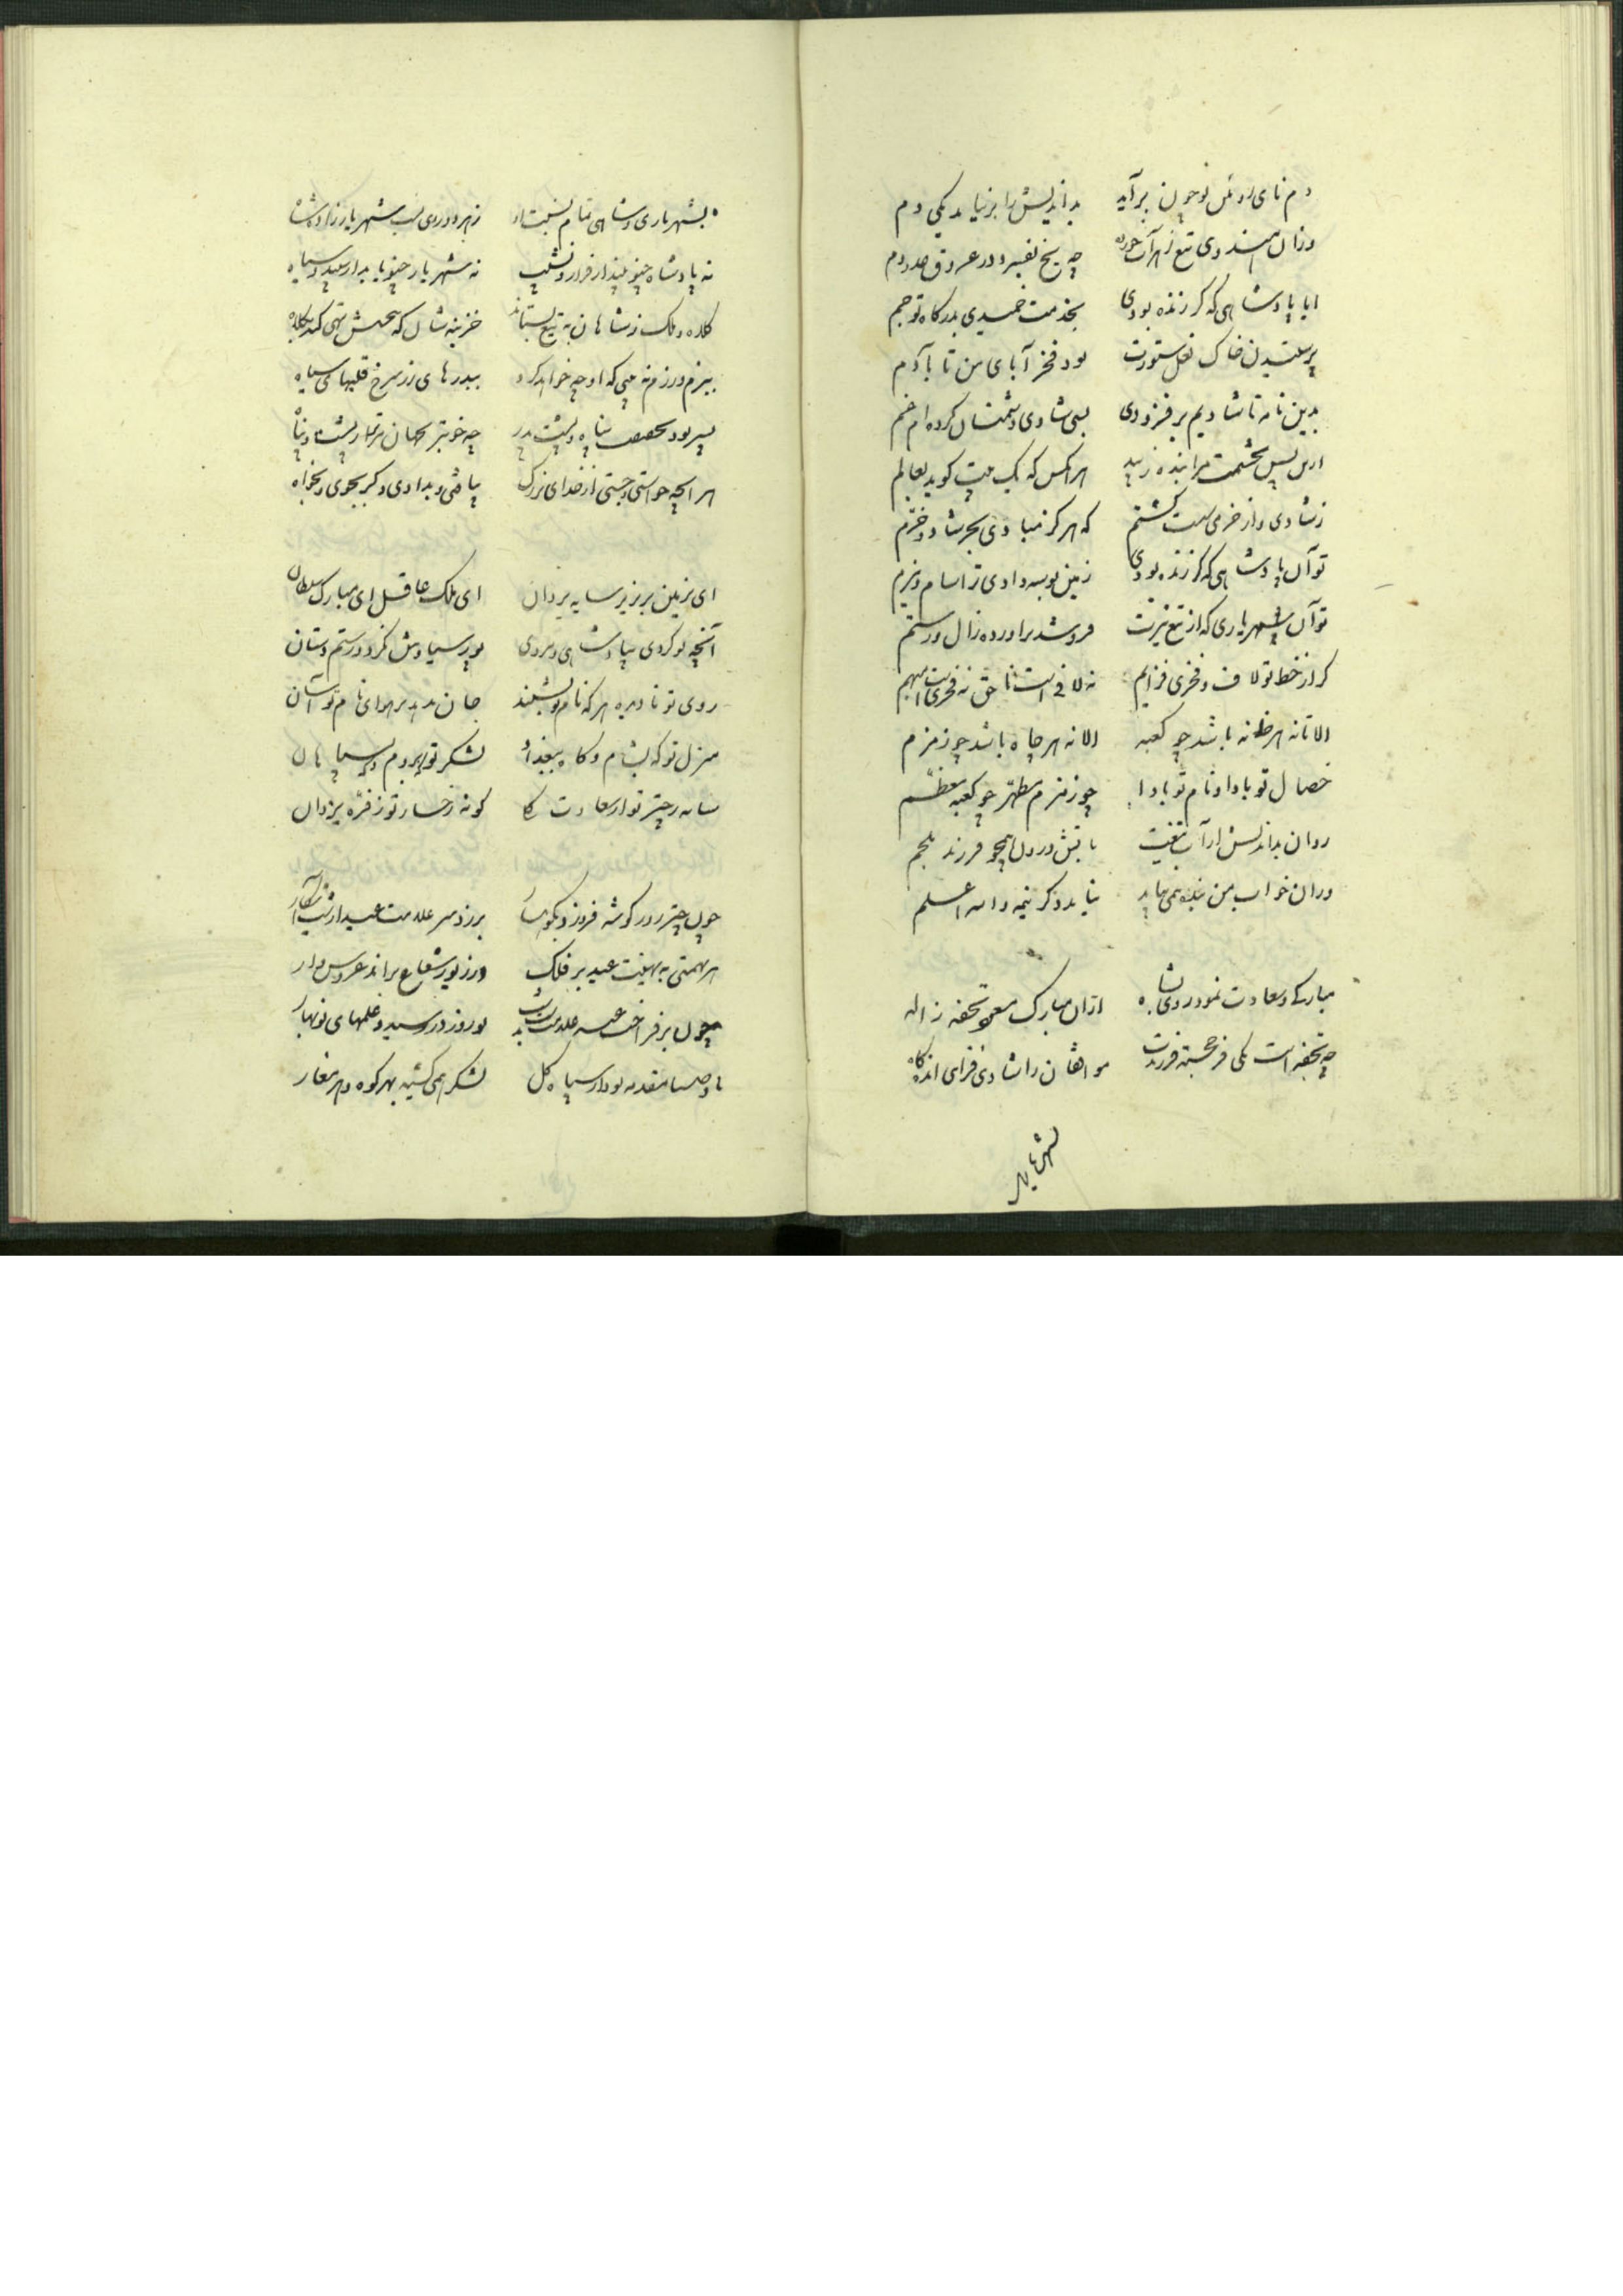 دم نای روئین نوچون برآید بداندیش را برنیاید یکی دم
وزان هندوی تیغ زهرآب خورده چه یخ بفسرد در عروق
ایا پادشاهی که گر زنده بودی بخدمت خمیدی بدرگاه تو جم
پرستیدن خاک نعل ستورت بود فخر آبای من تا بآدم
بدین نامه تا شادیم برفزودی بسی شادی دشمنان کرده‌ام غم
ازین پس بحشمت مرا بنده زیبد هر آنکس که یک بیت گوید بعالم
ز شادی و از خرمی گشتم که هرگز مبادی بجز شاد و خرم
تو آن پادشاهی که گر زنده بودی زمین بوسه دادی ترا سام و نیرم
تو آن شهریاری که از تیغ تیزت فروشد برآورده زال و رستم
گر از خط تو لاف و فخری فزایم نه لافیست ناحق نه فخریست مبهم
الا تا نه هر خانه باشد چو کعبه الا نه هر چاه باشد چو زمزم
خصال تو بادا و نام تو بادا چو زمزم مطهر چو کعبه معظم
روان بداندیش از آب تیغت بآتش درون همچو فرزند ملجم
در آن خواب من بنده می‌باید نیابد دگر نیمه والله اعلم
مبارکی و سعادت نمود روی بشاه ازان مبارک تحفه ز اله
چه تحفه است یکی فر خجسته فرزندت موافقان را شادی فزای انده‌کاه
بشهریاری
بشهریاری و شاهی تمام نسبت او ز هر دو روی نسب شهریارزاده و شاه
نه پادشاه چنو بیند از فراز و نشیب نه شهریار چنو یابد از سپید و سیاه
کلاه و ملک ز شاهان به تیغ بستاند خزینه‌شان که بخشش تهی کند بکلاه
ببزم و رزم نه بینی که او چه خواهد کرد ببدره‌های زر سرخ و قلبهای سیاه
پسر بود بحقیقت پناه و پشت پدر چه خوبتر بجهان مر ترا ز پشت و پناه
هر آنچه خواستی و جستی از خدای بزرگ بیافتی و بدادی و گر بجوی و بخواه
ای بزمین بر بزیر سایه یزدان ای ملک عاقل ای مبارک سلطان
آنچه تو کردی بپادشاهی و مردی پور سیاوش نکرد و رستم دستان
روی تو نادیده هر که نام تو بشنید جان بدهد بر هوای نام تو آسان
منزل تو که بشام و گاه ببغداد لشکر تو بروم و بسپاهان
سایه ز چتر تو از سعادت گونه رخسار تو ز فره یزدان
چون چتر روز گوشه فرو زد بکوهسار بر زد سر علامت عید از شب آشکار
هر نعمتی به تهنیت عید بر فلک در زیور شعاع براند عروس‌وار
چون برفراخت علامت نوروز در رسید و علمهای نوبهار
باد صبا مقدمه بود از سپاه گل لشکر همی کشید بهر کوه و مرغزار